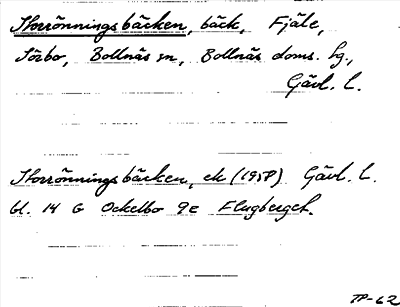 Storrönningsbäcken, bäck, Fjäle,
Sörbo, Bollnäs sn, Bollnäs doms. hg.,
Gävl. l.
Storrönningsbäcken, ek (1958) Gävl. l.
bl. 14 G Ockelbo 9e Flugberget.
TP-62